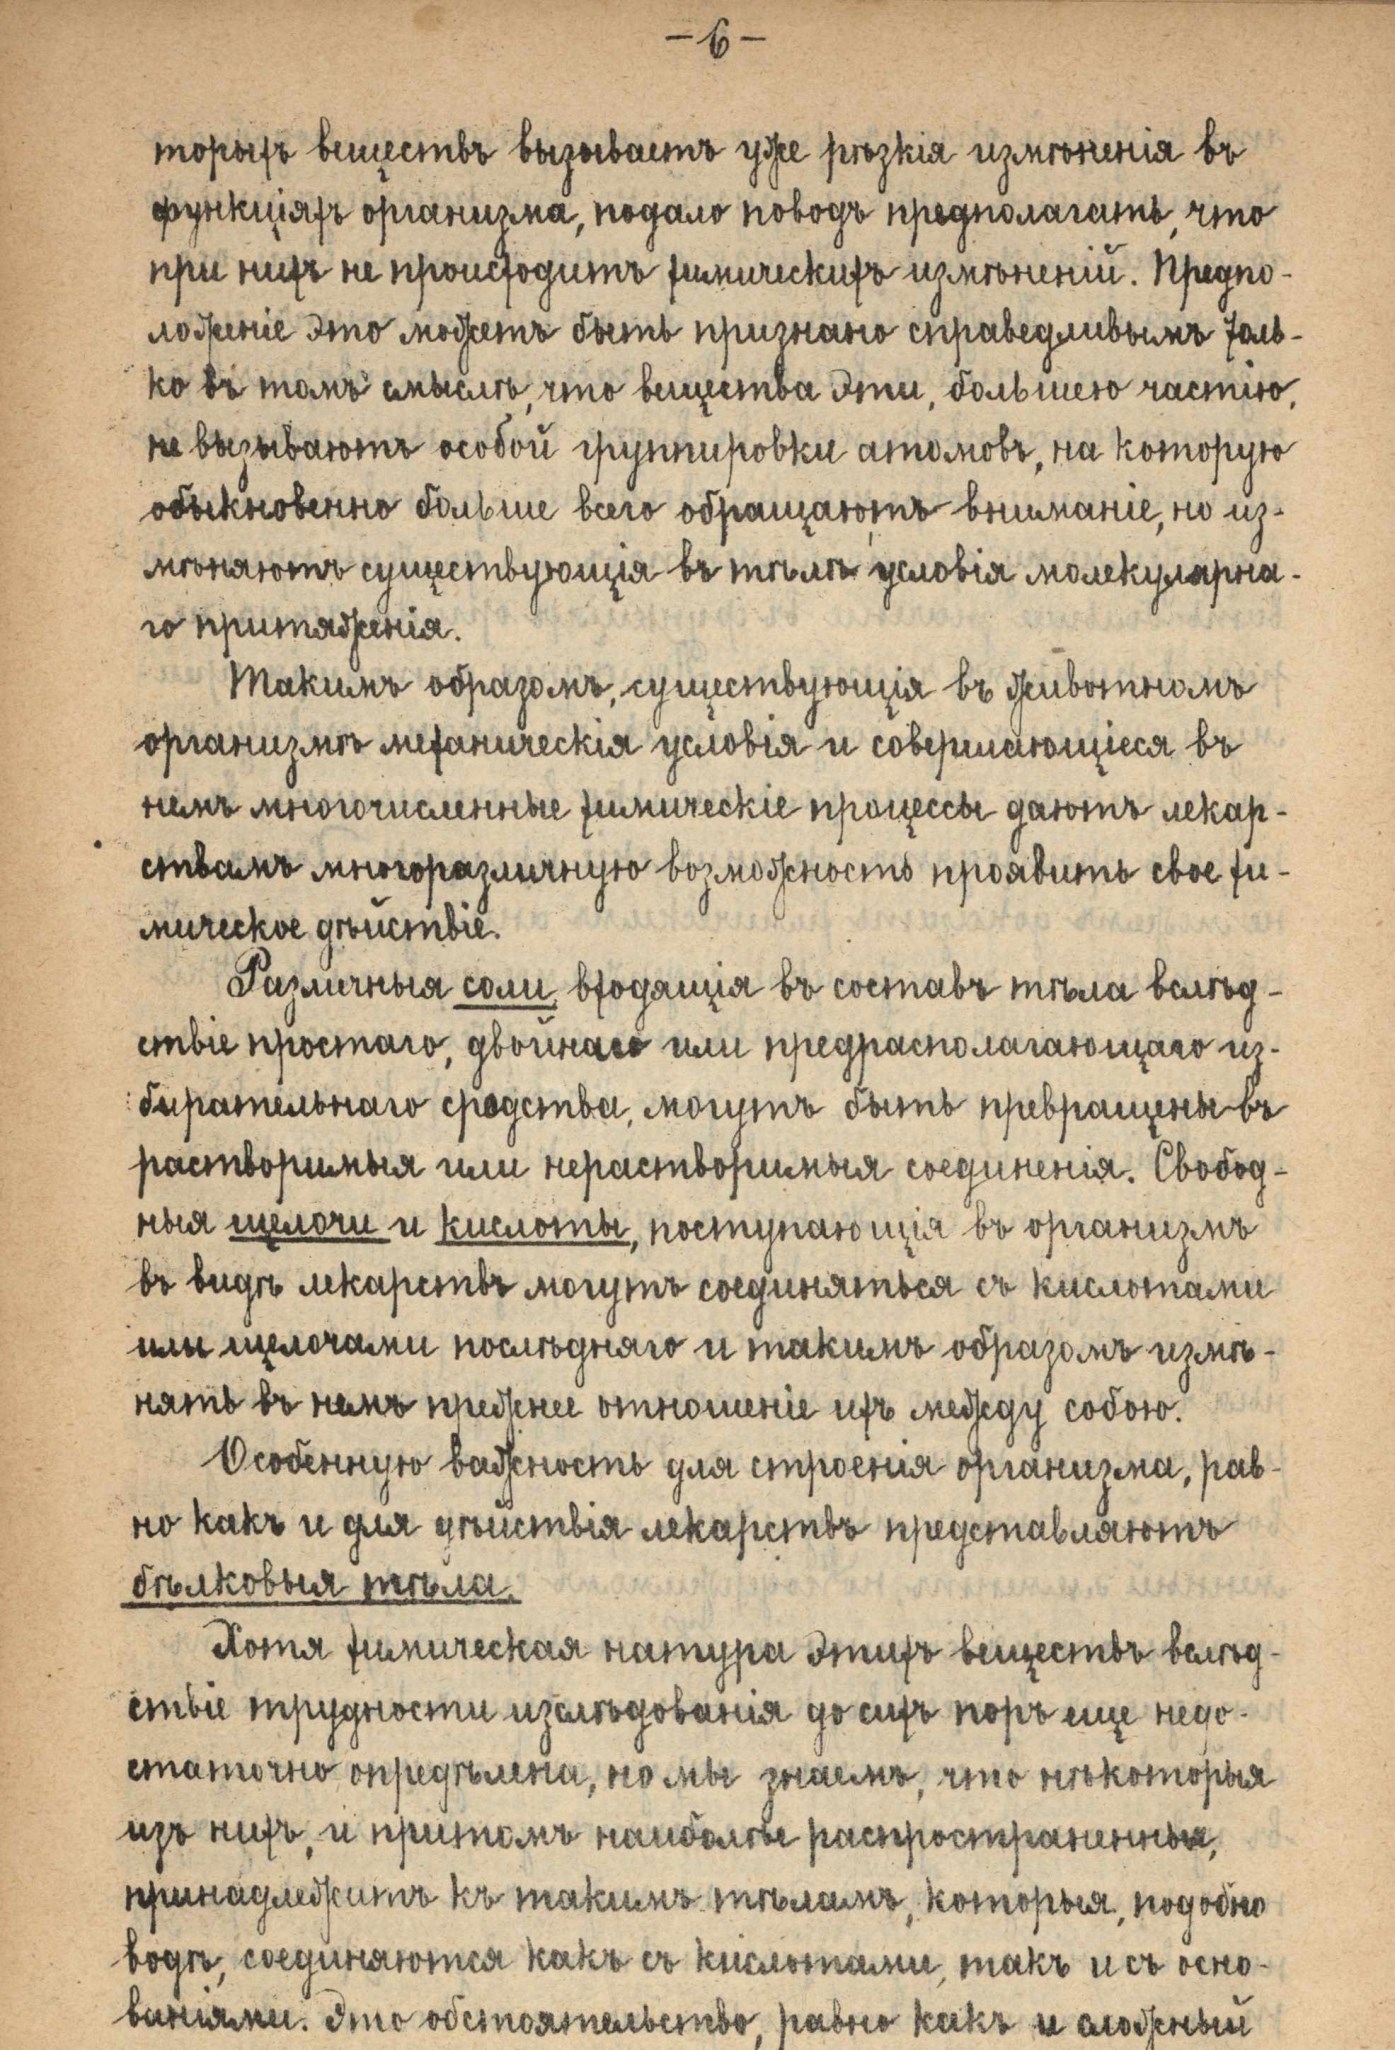 -6-
торыхъ веществъ вызываетъ уже рѣзкія измѣненія въ
функціяхъ организма, подало поводъ предполагать, что
при нихъ не происходитъ химическихъ измѣненій. Предпо-
ложеніе это можетъ быть признано справедливымъ толь-
ко въ томъ смыслѣ, что вещества эти, большею частію,
не вызываютъ особой группировки атомовъ, на которую
обыкновенно больше всего обращаютъ вниманіе, но из-
мѣняютъ существующія въ тѣлѣ условія молекулярна-
го притяженія.
Такимъ образомъ, существующія въ животномъ
организмѣ механическія условія и совершающіеся въ
немъ многочисленные химическіе процессы даютъ лекар-
ствамъ многоразличную возможность проявить свое хи-
мическое дѣйствіе.
Различныя соли, входящія въ составъ тѣла вслѣд-
ствіе простаго, двойнаго или предрасполагающаго из-
бирательнаго сродства, могутъ быть превращены въ
растворимыя или нерастворимыя соединенія. Свобод-
ныя щелочи и кислоты, поступающія въ организмъ
въ видѣ лекарствъ могутъ соединяться съ кислотами
или щелочами послѣдняго и такимъ образомъ измѣ-
нять въ немъ прежнее отношеніе ихъ между собою.
Особенную важность для строенія организма, рав-
но какъ и для дѣйствія лекарствъ представляютъ
бѣлковыя тѣла.
Хотя химическая натура этихъ веществъ вслѣд-
ствіе трудности изслѣдованія до сихъ поръ еще недо-
статочно опредѣлена, но мы знаемъ, что нѣкоторыя
изъ нихъ, и притомъ наиболѣе распространенныя,
принадлежитъ къ такимъ тѣламъ, которыя, подобно
водѣ, соединяются какъ съ кислотами, такъ и съ осно-
ваніями. Это обстоятельство, равно какъ и сложный